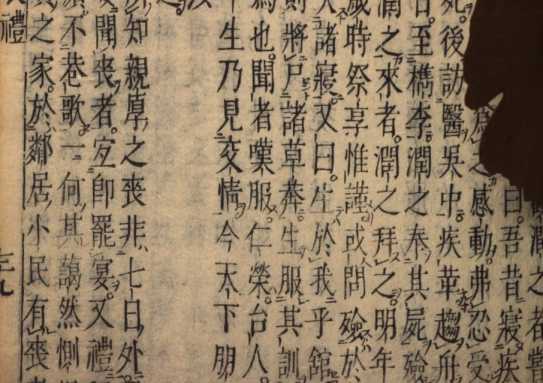 潤之者嘗
曰。吾昔寢疾
為之感動。弗忍受
死。後訪醫吳中。疾革。趨舟
至檇李。潤之奉其屍殮
潤之來者。潤之拜之。明年
歲時祭享惟謹。或問殮於
諸寢。又曰。生於我乎館
則將尸諸草莽。生服其訓
為也。聞者嘆服。仁榮。台人。
生乃見交情。今天下朋
知親厚之喪。非七日外
聞喪者。宜即罷宴。又禮
不巷歌。一何其藹然惻
之家。於鄰居小民有喪者
禮